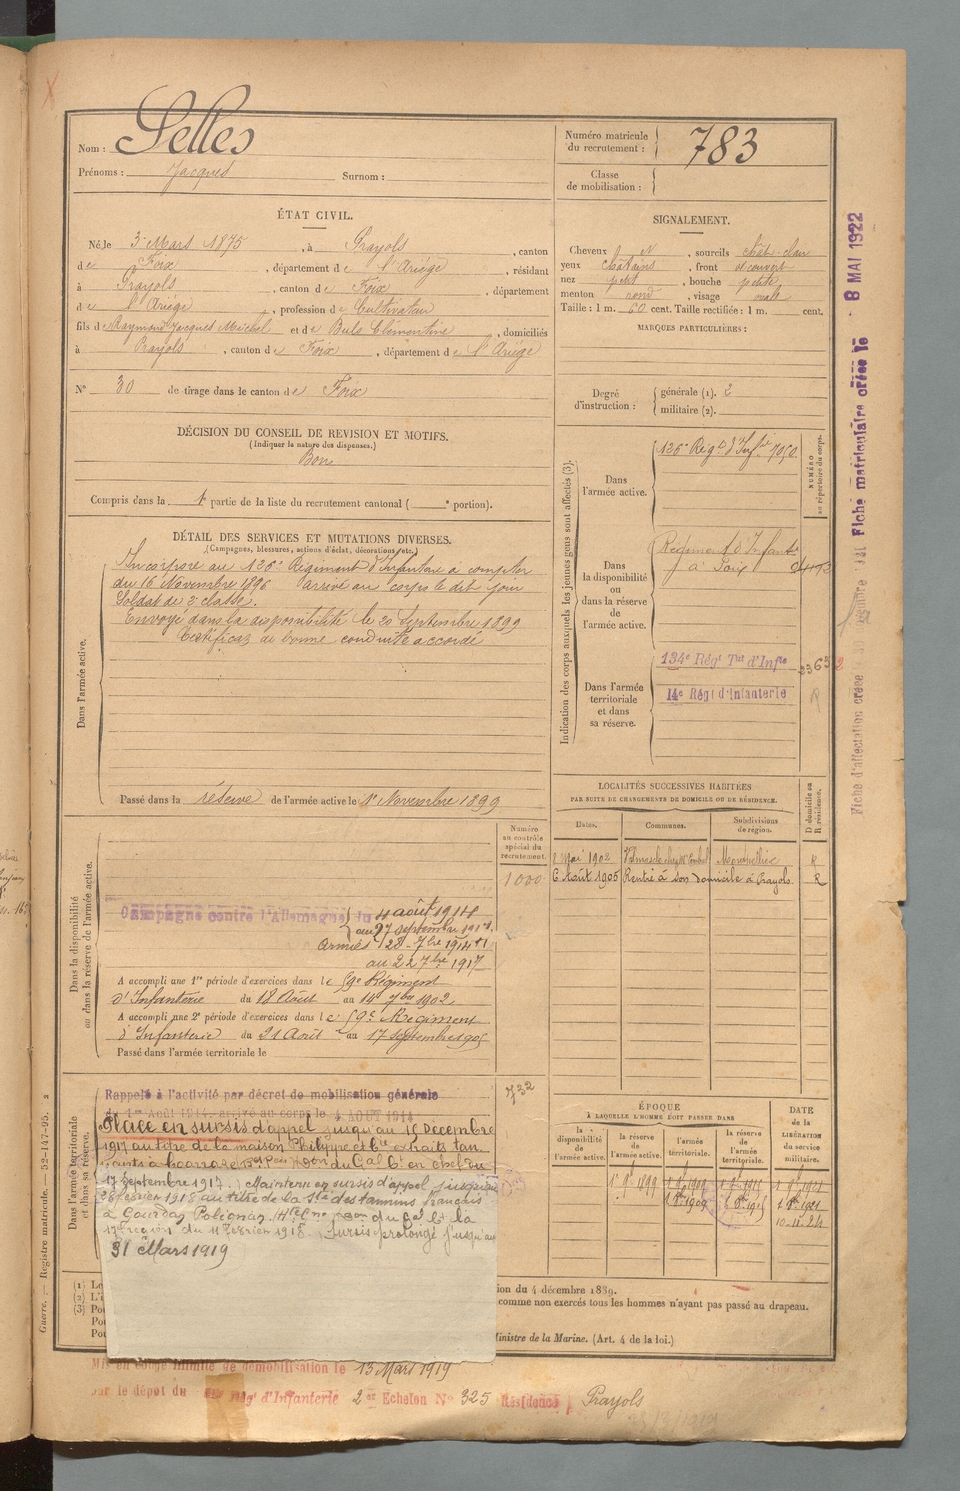 Nom : Selles
Prénoms : Jacques Surnom :
Numéro matricule du recrutement : 783
Classe de mobilisation :
ÉTAT CIVIL.
Né, le 3 Mars 1875, à Prayols, canton
de Foix, département de l'Ariége, résidant
à Prayols, canton de Foix, département
de l'Ariége, profession de Cultivateur
fils de Raymond Jacques Michel et de Buls Clémentine, domiciliés
à Prayols, canton de Foix, département de l'Ariége
N° 30 de tirage dans le canton de Foix
SIGNALEMENT.
Cheveux, sourcils chât. clair
yeux châtains, front découvert
nez petit, bouche petite
menton rond, visage ovale
Taille : 1 m. 60 cent. Taille rectifiée : 1 m. cent.
MARQUES PARTICULIÈRES :
Degré d'instruction : générale (1). 2
militaire (2).
DÉCISION DU CONSEIL DE REVISION ET MOTIFS.
(Indiquer la nature des dispenses.)
Bon
Compris dans la 1e partie de la liste du recrutement cantonal ( e portion).
DÉTAIL DES SERVICES ET MUTATIONS DIVERSES.
(Campagnes, blessures, actions d'éclat, décorations, etc.)
Dans l'armée active.
Incorporé au 126e Régiment d'Infanterie à compter
du 16 Novembre 1896 arrivé au corps le dit jour
Soldat de 2e classe.
Envoyé dans la disponibilité le 20 Septembre 1899
Certificat de bonne conduite accordé
Passé dans la réserve de l'armée active le 1er Novembre 1899
Indication des corps auxquels les jeunes gens sont affectés (3).
NUMÉRO au répertoire du corps.
Dans l'armée active.
126e Régt d'Infie 7050
Dans la disponibilité ou dans la réserve de l'armée active.
Régiment d'Infante
à Foix
Dans l'armée territoriale et dans sa réserve.
134e Régt Tal d'Infie
14e Régt d'Infanterie
R
LOCALITÉS SUCCESSIVES HABITÉES
PAR SUITE DE CHANGEMENTS DE DOMICILE OU DE RÉSIDENCE.
D domicile ou R résidence.
Dates. Communes. Subdivisions de région.
2 Mai 1902 Montpellier R
6 Août 1905 Rentré à son domicile à Prayols R
Dans la disponibilité ou dans la réserve de l'armée active.
Numéro au contrôle spécial du recrutement.
1000
Campagne contre l'Allemagne du 4 août 1914
au 27 septembre 1917
Armées 28 7bre 1914
au 22 7bre 1917
A accompli une 1re période d'exercices dans le 59e Régiment
d'Infanterie du 18 Août au 14 7bre 1902
A accompli une 2e période d'exercices dans le 59e Régiment
d'Infanterie du 21 Août au 17 septembre 1905
Passé dans l'armée territoriale le
Dans l'armée territoriale et dans sa réserve.
732
Rappelé à l'activité par décret de mobilisation générale
du 1er Août 1914, arrivé au corps le 4 AOUT 1914
Placé en sursis d'appel jusqu'au 15 Décembre
1917 au titre de la maison Philippe et Cie extraits tan
17 septembre 1917. Maintenu en sursis d'appel jusqu'au
28 février 1918 au titre de la Sté des tannins français
à Gourdan Polignan
17e région du 11 février 1918. Sursis prolongé jusqu'au
31 Mars 1919
ÉPOQUE
À LAQUELLE L'HOMME DOIT PASSER DANS
la disponibilité de l'armée active.
la réserve de l'armée active.
l'armée territoriale.
la réserve de l'armée territoriale.
DATE de la LIBÉRATION du service militaire.
1er 9bre 1899
10-11-24
(1)
(2)
(3)
ion du 4 décembre 1889.
comme non exercés tous les hommes n'ayant pas passé au drapeau.
Ministre de la Marine. (Art. 4 de la loi.)
Mis en congé illimité de démobilisation le 13 Mars 1919
par le dépot du Régt d'Infanterie 2e Echelon N° 325 Résidence Prayols
Guerre. — Registre matricule. — 52-147-95. 2
Fiche matriculaire créée le 8 MAI 1922